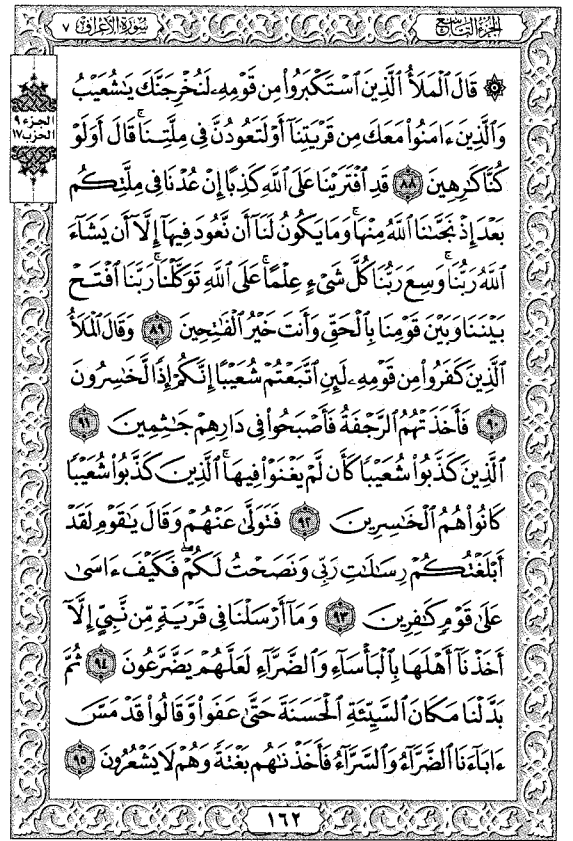 الجزء التاسع
سورة الأعراف ٧
الجزء ٩
الحزب ١٧
۞ قَالَ ٱلْمَلَأُ ٱلَّذِينَ ٱسْتَكْبَرُوا۟ مِن قَوْمِهِۦ لَنُخْرِجَنَّكَ يَـٰشُعَيْبُ
وَٱلَّذِينَ ءَامَنُوا۟ مَعَكَ مِن قَرْيَتِنَآ أَوْ لَتَعُودُنَّ فِى مِلَّتِنَا ۚ قَالَ أَوَلَوْ
كُنَّا كَـٰرِهِينَ ٨٨ قَدِ ٱفْتَرَيْنَا عَلَى ٱللَّهِ كَذِبًا إِنْ عُدْنَا فِى مِلَّتِكُم
بَعْدَ إِذْ نَجَّىٰنَا ٱللَّهُ مِنْهَا ۚ وَمَا يَكُونُ لَنَآ أَن نَّعُودَ فِيهَآ إِلَّآ أَن يَشَآءَ
ٱللَّهُ رَبُّنَا ۚ وَسِعَ رَبُّنَا كُلَّ شَىْءٍ عِلْمًا ۚ عَلَى ٱللَّهِ تَوَكَّلْنَا ۚ رَبَّنَا ٱفْتَحْ
بَيْنَنَا وَبَيْنَ قَوْمِنَا بِٱلْحَقِّ وَأَنتَ خَيْرُ ٱلْفَـٰتِحِينَ ٨٩ وَقَالَ ٱلْمَلَأُ
ٱلَّذِينَ كَفَرُوا۟ مِن قَوْمِهِۦ لَئِنِ ٱتَّبَعْتُمْ شُعَيْبًا إِنَّكُمْ إِذًا لَّخَـٰسِرُونَ
٩٠ فَأَخَذَتْهُمُ ٱلرَّجْفَةُ فَأَصْبَحُوا۟ فِى دَارِهِمْ جَـٰثِمِينَ ٩١
ٱلَّذِينَ كَذَّبُوا۟ شُعَيْبًا كَأَن لَّمْ يَغْنَوْا۟ فِيهَا ۚ ٱلَّذِينَ كَذَّبُوا۟ شُعَيْبًا
كَانُوا۟ هُمُ ٱلْخَـٰسِرِينَ ٩٢ فَتَوَلَّىٰ عَنْهُمْ وَقَالَ يَـٰقَوْمِ لَقَدْ
أَبْلَغْتُكُمْ رِسَـٰلَـٰتِ رَبِّى وَنَصَحْتُ لَكُمْ ۖ فَكَيْفَ ءَاسَىٰ
عَلَىٰ قَوْمٍ كَـٰفِرِينَ ٩٣ وَمَآ أَرْسَلْنَا فِى قَرْيَةٍ مِّن نَّبِىٍّ إِلَّآ
أَخَذْنَآ أَهْلَهَا بِٱلْبَأْسَآءِ وَٱلضَّرَّآءِ لَعَلَّهُمْ يَضَّرَّعُونَ ٩٤ ثُمَّ
بَدَّلْنَا مَكَانَ ٱلسَّيِّئَةِ ٱلْحَسَنَةَ حَتَّىٰ عَفَوا۟ وَّقَالُوا۟ قَدْ مَسَّ
ءَابَآءَنَا ٱلضَّرَّآءُ وَٱلسَّرَّآءُ فَأَخَذْنَـٰهُم بَغْتَةً وَهُمْ لَا يَشْعُرُونَ ٩٥
١٦٢